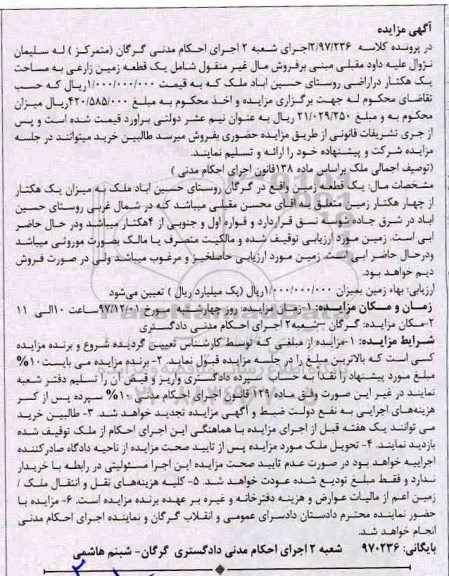 آگهی مزایده
در پرونده کلاسه ۲/۹۷/۲۳۶اجرای شعبه ۲ اجرای احکام مدنی گرگان (متمرکز ) له سلیمان
نژوال علیه داود مقبلی مبنی برفروش مال غیر منقول شامل یک قطعه زمین زراعی به مساحت
یک هکتار دراراضی روستای حسین اباد ملک که به قیمت ۱/۰۰۰/۰۰۰/۰۰۰ریال که حسب
تقاضای محکوم له جهت برگزاری مزایده و اخذ محکوم به مبلغ ۴۲۰/۵۸۵/۰۰۰ریال میزان
محکوم به و مبلغ ۲۱/۰۲۹/۲۵۰ ریال به عنوان نیم عشر دولتی براورد قیمت شده است و پس
از جری تشریفات قانونی از طریق مزایده حضوری بفروش میرسد طالبین خرید میتوانند در جلسه
مزایده شرکت و پیشنهاده خود را ارائه و تسلیم نمایند.
(توصیف اجمالی ملک براساس ماده ۱۳۸قانون اجرای احکام مدنی )
مشخصات مال: یک قطعه زمین واقع در گرگان روستای حسین اباد ملک به میزان یک هکتار
از چهار هکتار زمین متعلق به اقای محسن مقبلی میباشد که در شمال غربی روستای حسین
اباد در شرق جاده شوسه نسق قرار دارد و قواره اول و جنوبی از ۴هکتار میباشد ودر حال حاضر
ابی است. زمین مورد ارزیابی توقیف شده و مالکیت متصرف یا مالک بصورت موروثی میباشد
ودرحال حاضر ابی است. زمین مورد ارزیابی حاصلخیز و مرغوب میباشد ولی در صورت فروش
دیم خواهد بود.
ارزیابی: بهاء زمین بمیزان ۱/۰۰۰/۰۰۰/۰۰۰ریال (یک میلیارد ریال ) تعیین می‌شود
زمان و مکان مزایده: ۱-زمان مزایده: روز چهارشنبه مورخ ۹۷/۱۲/۰۱ساعت ۱۰الی ۱۱
۲-مکان مزایده: گرگان –شعبه۲ اجرای احکام مدنی دادگستری
شرایط مزایده: ۱-مزایده از مبلغی که توسط کارشناس تعیین گردیده شروع و برنده مزایده
کسی است که بالاترین مبلغ را در جلسه مزایده قبول نماید. ۲- برنده مزایده می بایست۱۰%
مبلغ مورد پیشنهاد را نقدا به حساب سپرده دادگستری واریز و قبض آن را تسلیم دفتر شعبه
نمایند در غیر این صورت وفق ماده ۱۲۹ قانون اجرای احکام مدنی ۱۰% سپرده پس از کسر
هزینه‌های اجرایی به نفع دولت ضبط و آگهی مزایده تجدید خواهد شد. ۳- طالبین خرید
می توانند یک هفته قبل از اجرای مزایده با هماهنگی این اجرای احکام از ملک توقیف شده
بازدید نمایند. ۴- تحویل ملک مورد مزایده پس از تایید صحت مزایده از ناحیه دادگاه صادرکننده
اجراییه خواهد بود در صورت عدم تایید صحت مزایده این اجرا مسئولیتی در رابطه با خریدار
ندارد و فقط مبلغ تودیع شده عودت خواهد شد. ۵- کلیه هزینه‌های نقل و انتقال ملک /
زمین اعم از مالیات عوارض و هزینه دفترخانه و غیره بر عهده برنده مزایده است. ۶- مزایده با
حضور نماینده محترم دادستان دادسرای عمومی و انقلاب گرگان و نماینده اجرای احکام مدنی
انجام خواهد شد.
بایگانی: ۹۷۰۲۳۶ شعبه ۲ اجرای احکام مدنی دادگستری گرگان- شبنم هاشمی